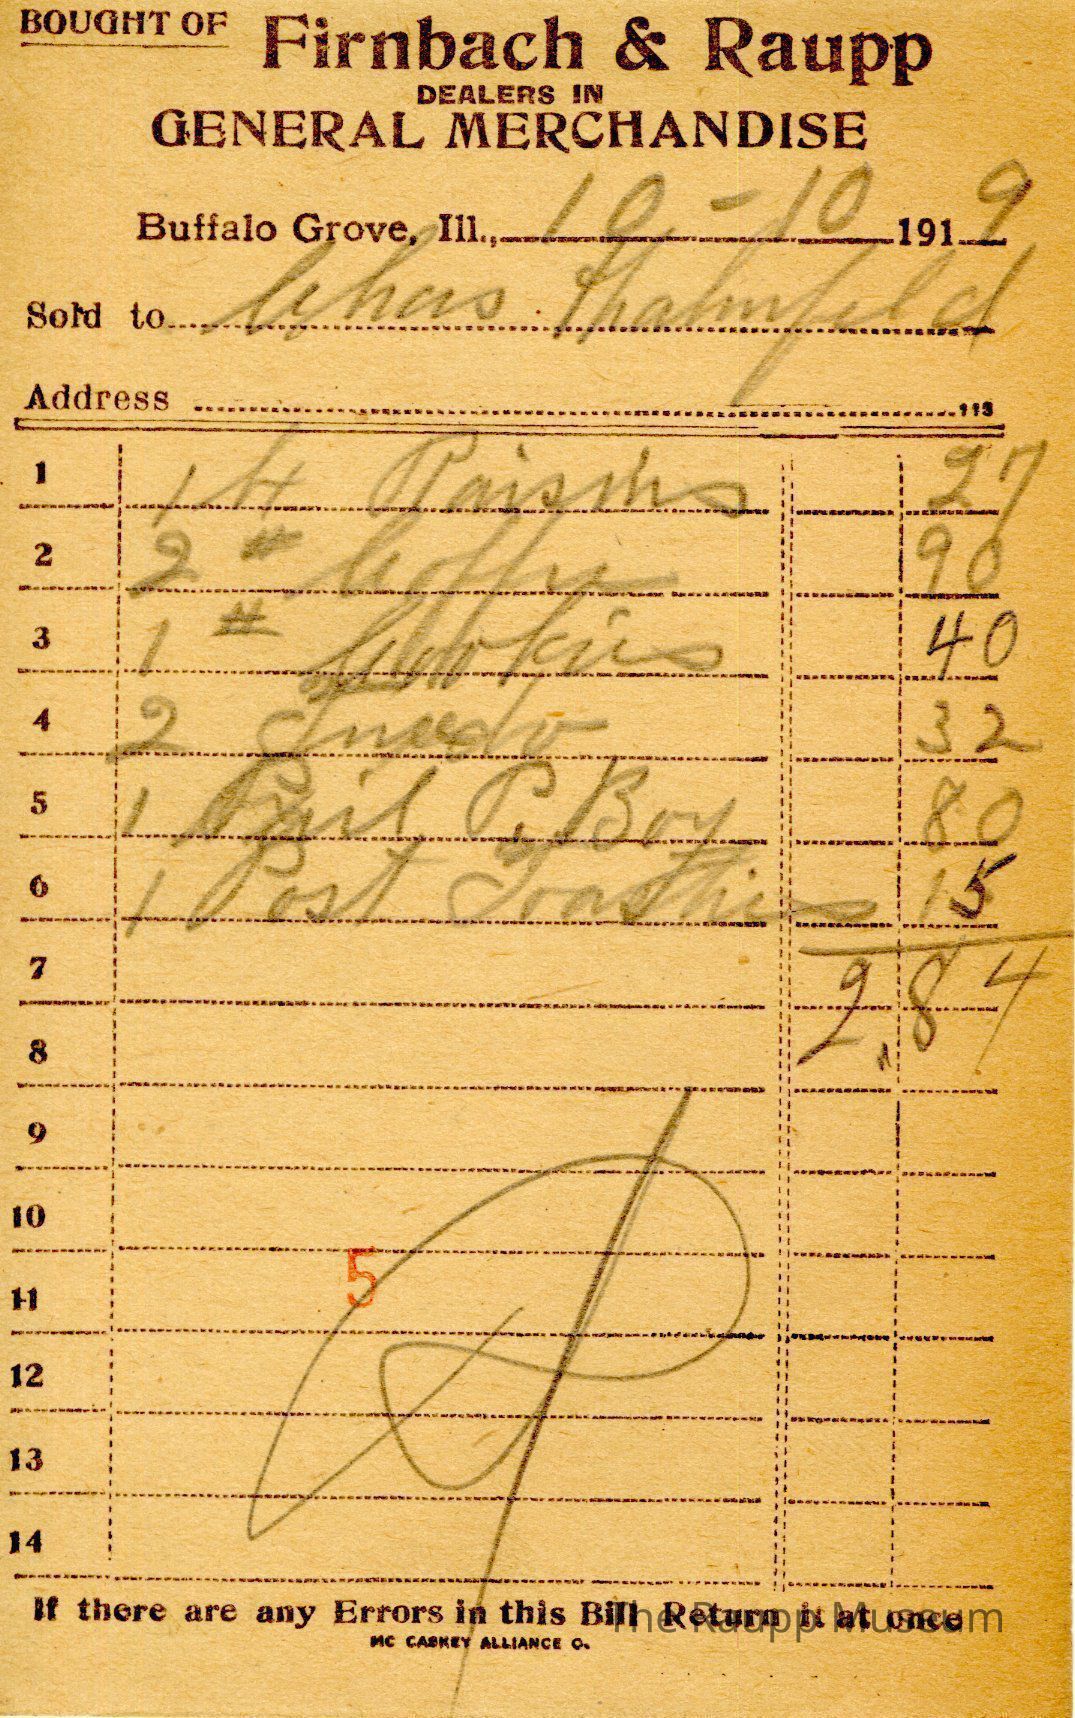 BOUGHT OF Firnbach & Raupp
DEALERS IN
GENERAL MERCHANDISE
Buffalo Grove, Ill., 10-10 1919
Sold to Chas
Address 113
1 1 # Raisins 27
2 2 # Coffee 90
3 1 # Cookies 40
4 2 32
5 1 Pail P. Boy 80
6 1 Post Toasties 15
7 2.84
8
9
10
5
11
12
13
14
If there are any Errors in this Bill Return it at once
The Raupp Museum
MC CASKEY ALLIANCE O.